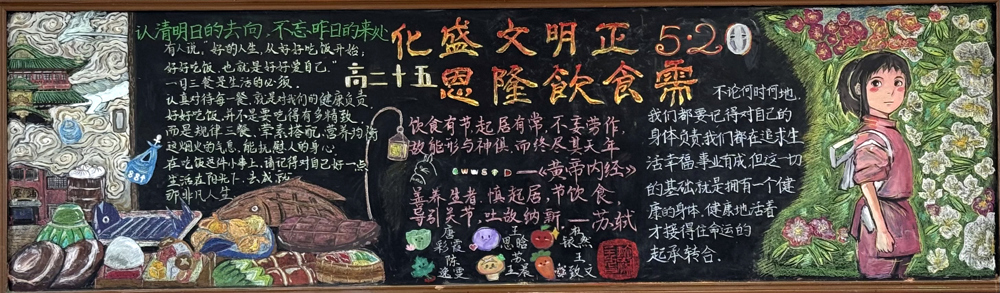 认清明日的去向，不忘昨日的来处
有人说，"好的人生，从好好吃饭开始，
好好吃饭，也就是好好爱自己."
一日三餐是生活的必须.
认真对待每一餐，就是对我们的健康负责.
好好吃饭，并不是要吃得有多精致，
而是规律三餐，荤素搭配，营养均衡
这烟火的气息，能抚慰人的身心.
在吃饭这件小事上，请记得对自己好一点
生活在阳光下，去成就
那非凡人生
化盛文明正 5·20
高二十五恩隆飲食需
饮食有节，起居有常，不妄劳作，
故能形与神俱，而终尽其天年
——《黄帝内经》
善养生者，慎起居，节饮食，
导引关节，吐故纳新.——苏轼
唐彩霞
王思晗
银燕
陈建雯
苏孟晨
王致文
不论何时何地，
我们都要记得对自己的
身体负责.我们都在追求生
活幸福，事业有成，但这一切
的基础，就是拥有一个健
康的身体，健康地活着
才接得住命运的
起承转合.